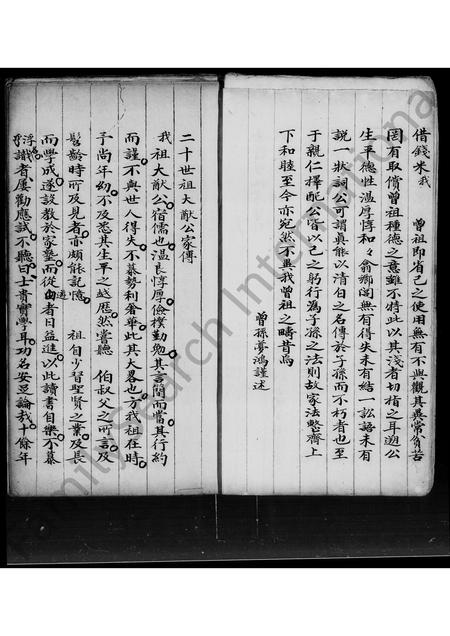 借錢米我 曾祖即省己之使用無有不與觀其異常貧苦
因有取償曾祖種德之意雖不將此以其淺者切指之耳迹公
生平德性溫厚惇和々俞鄉閭無有得失未有結一訟語未有
說一狀詞公可謂真能以清白之名傳於子孫而不朽者也至
于親仁擇配公皆以己之躬行為子孫之法則故家法整齊上
下和睦至今亦宛然不異我曾祖之疇昔焉
曾孫夢鴻謹述
二十世祖大猷公家傳
我 祖大猷公宿儒也溫良惇厚儉樸勤勉其言簡而當其行約
而謹不與世人得失不慕勢利奢華此其大畧也方我祖在時
予尚年幼不及悉其生平之越歷然嘗聽 伯叔父之所言及
髫齡時所及見者亦頗能記憶 祖自少習聖賢之業及長
而學成遂設教於家塾而從遊者日益進以此讀書自樂不慕
浮
識者屢勸應試不聽曰士貴實學耳功名安足論哉十餘年
FamilySearch International